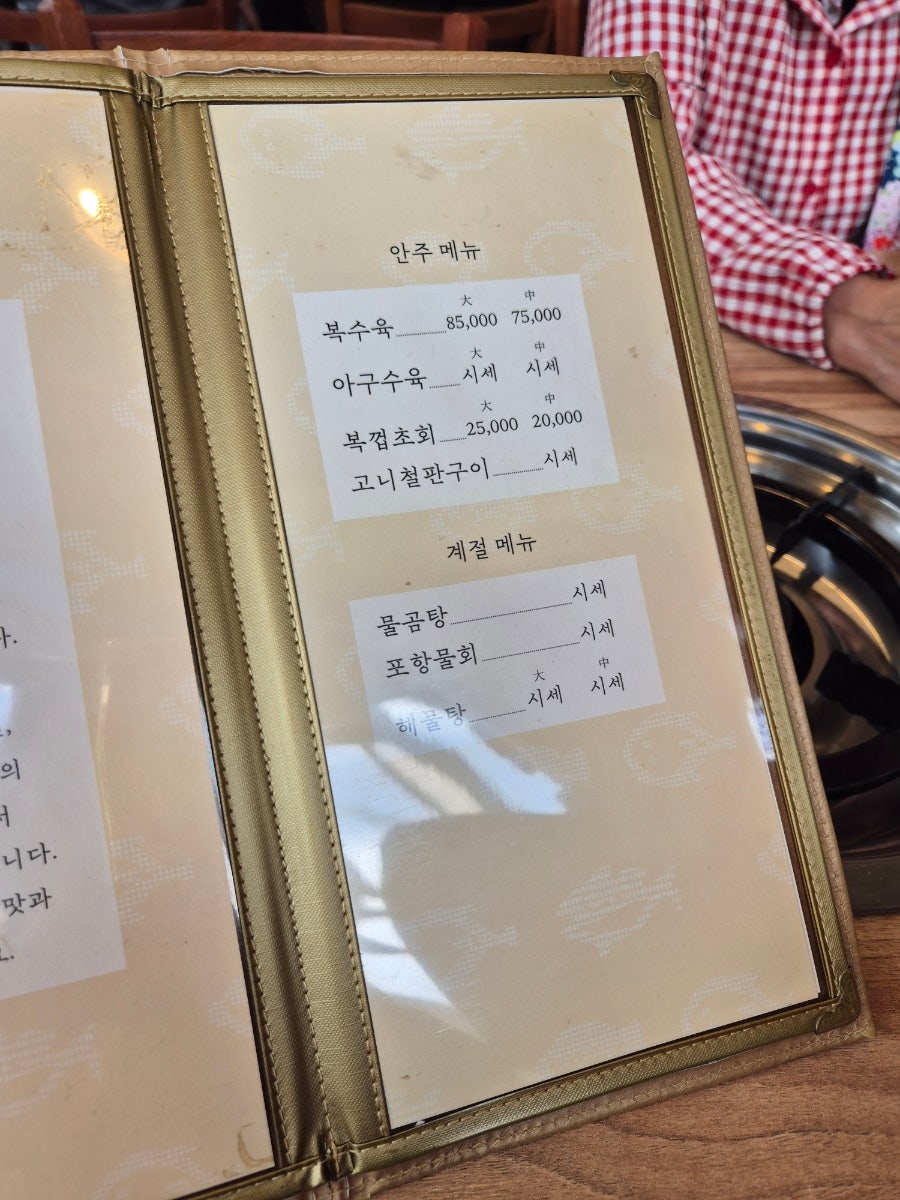 안주 메뉴
大 中
복수육 85,000 75,000
大 中
아구수육 시세 시세
大 中
복껍초회 25,000 20,000
고니철판구이 시세
계절 메뉴
물곰탕 시세
포항물회 시세
大 中
해물탕 시세 시세
다.
의
니다.
맛과